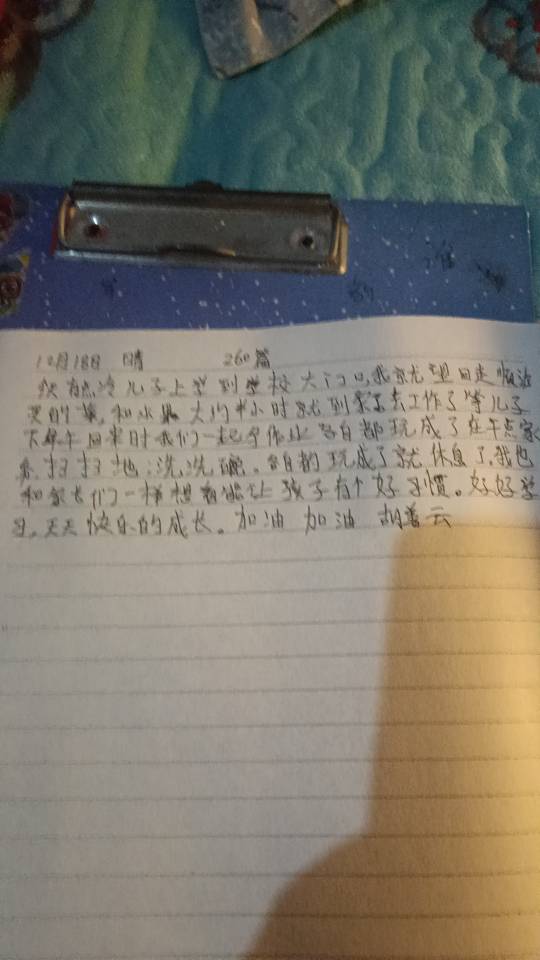 10月18日 晴 260篇
有点冷儿子上学到学校大门口,我就望回走顺汝
买的菜,和水果大约半小时就到家了去工作了等儿子
下午回来时我们一起多作业各自都玩成了在干点家
务,扫扫地,洗洗碗。各自都玩成了就休息了,我也
和家长们一样想着能让孩子有个好习惯。好好学
习,天天快乐的成长。加油 加油 云